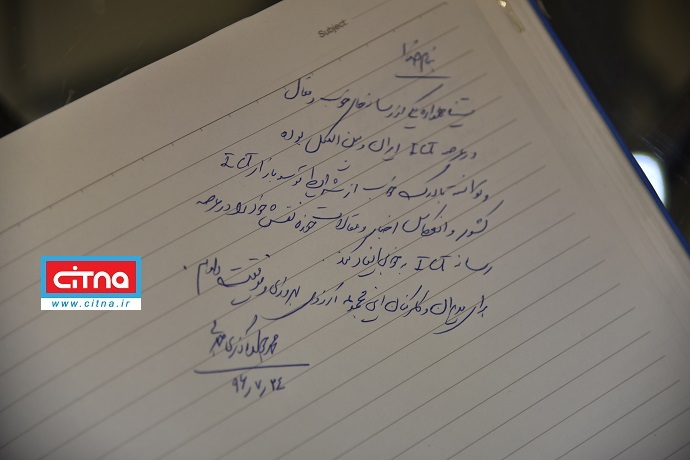 Subject
بنام خدا
سیتنا همواره یکی از رسانه‌های خوب و فعال
در عرصه ICT ایران و بین الملل بوده
و توانسته با درک خوب از شرایط توسعه بازار ICT
کشور و انعکاس اخبار و مقالات حوزه نقش خود را در عرصه
رسانه ICT به خوبی ایفا کند.
برای مدیران و کارکنان این مجموعه آرزوی بهروزی و موفقیت دارم.
۹۶٫۷٫۲۴
CITNA
www.citna.ir